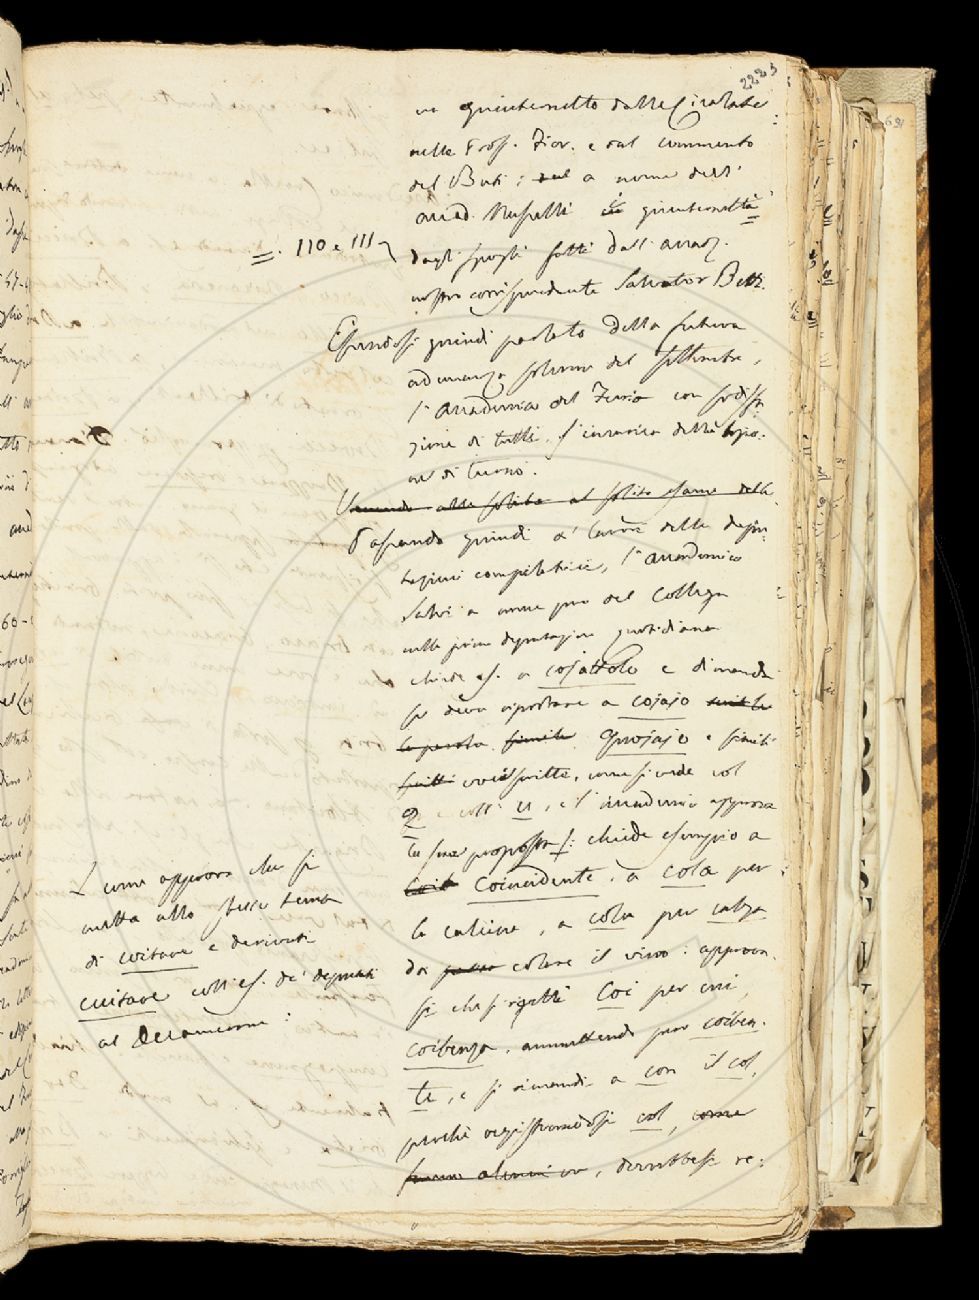 222
va quinternetto dalle Cicalate
nelle Pros. Fior. e dal commento
del Buti; dal a nome dell'
accad. Muzzi quinternetto
= . 110 e 111
dagli spogli fatti dall' accad.
nostro corrispondente Salvator Betti.
Essendosi quindi parlato della futura
adunanza solenne del settembre,
l'accademico del Furia con sodisfa
zione di tutti, s'incarica della lezio-
ne di turno.
al solito esame della
Passando quindi a' lavori delle depu
tazioni compilatrici, l'accademico
Salvi a nome pur del Collega
nella prima deputazione quotidiana
chiede es. a cojattolo e dimanda
se deva riportare a cojajo
la parola simile quojajo e simili
voci scritte, come si vede col
Q e coll' u, e l'accademia approva
la sua proposta: chiede esempio a
Coincidente, a cola per
la calcina, a cola per calza
da colare il vino: approvan
si che si rigetti Coi per cui,
coibenza, ammettendo pur coiben-
te, e si rimandi a con il col,
perchè registrandosi col, come
dovrebbesi re-
come approva che si
metta allo stesso tema
di coitare e derivati
cuitare coll' es. de' deputati
al Decamerone: